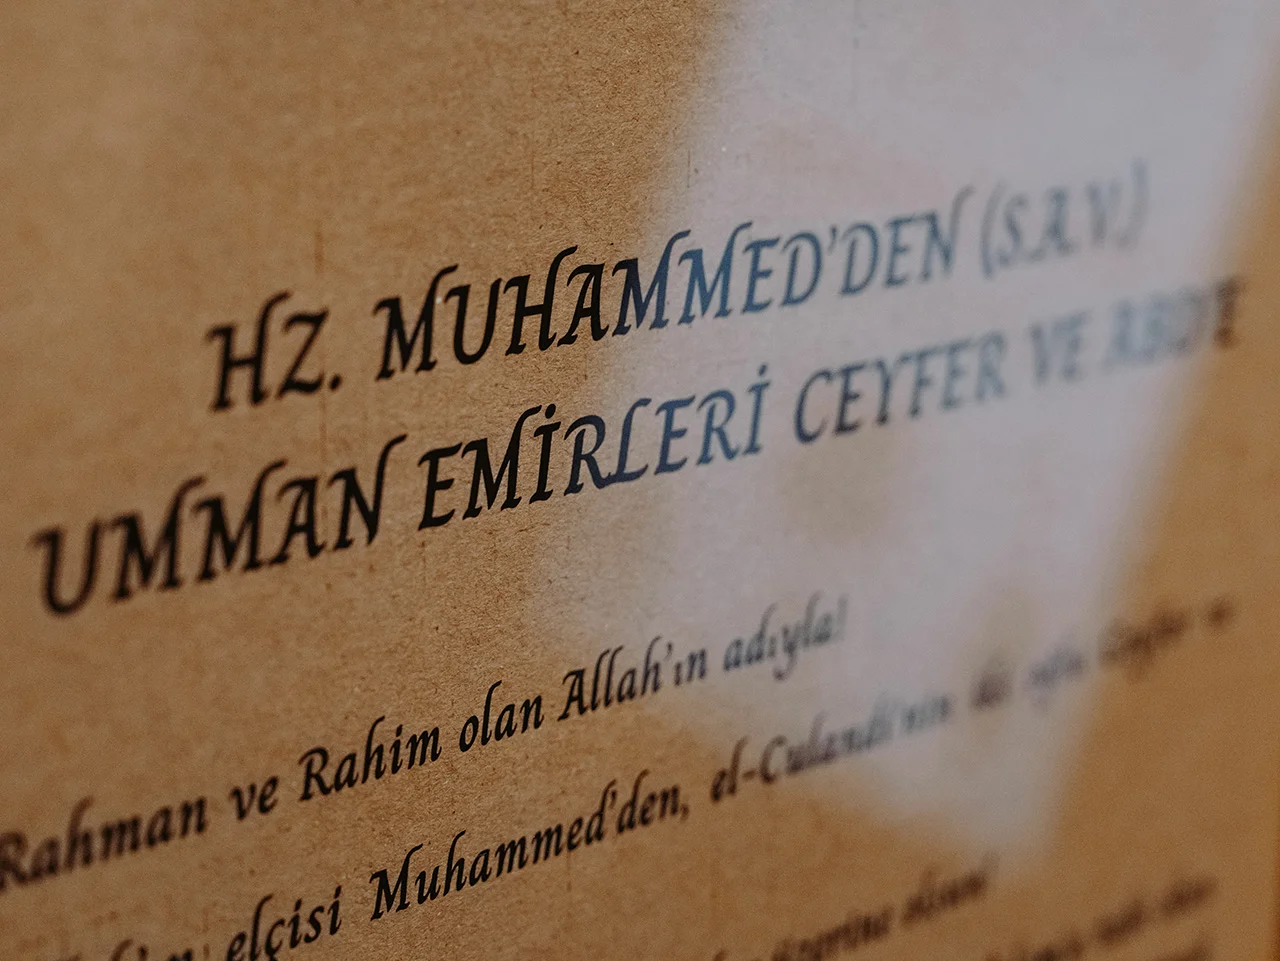 HZ. MUHAMMED'DEN (S.A.V.)
UMMAN EMİRLERİ CEYFER VE ABD'E
Rahman ve Rahim olan Allah'ın adıyla!
elçisi Muhammed'den, el-Culandi'nin iki oğlu Ceyfer ve
üzerine olsun!